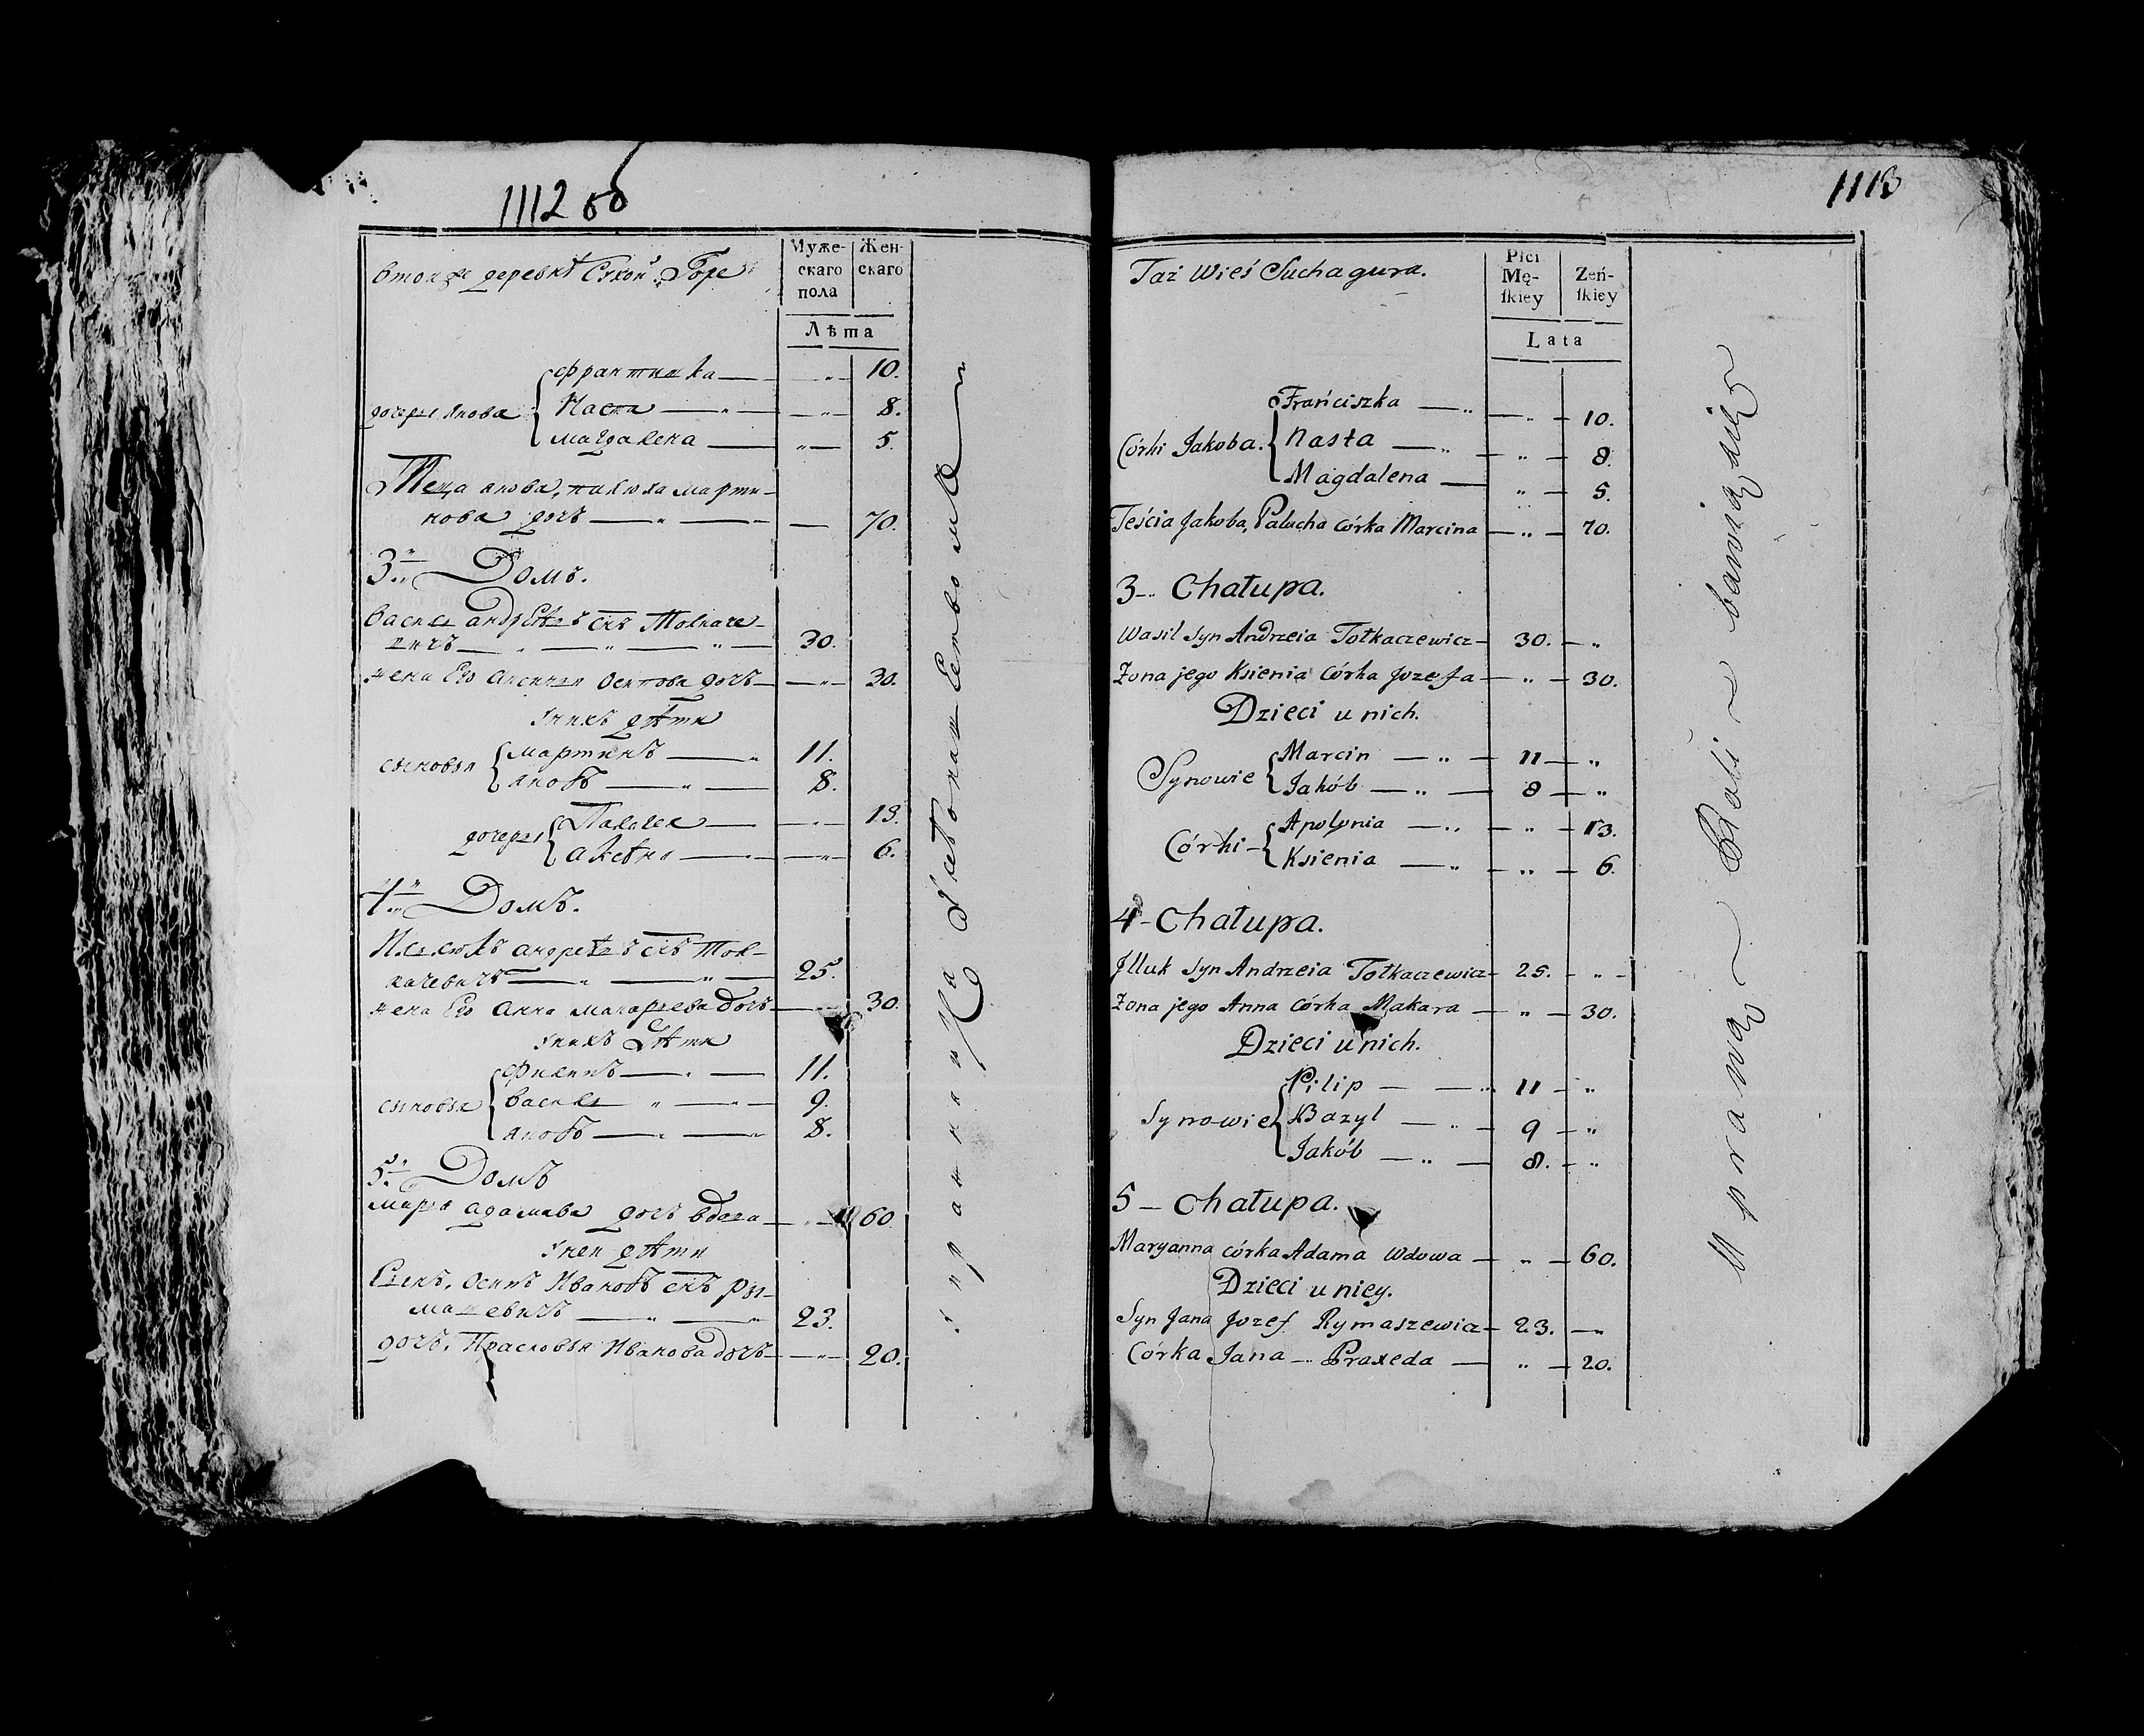 1112 60
втой же деревнѣ Сухой Горе
Муже-
скаго
пола
Жен-
скаго
Лѣта
Францишка — „ — 10.
дочери Якова
Наста — „ — „ 8.
Магдалена — „ — 5.
Теща якова, палюха марти-
нова дочь — „ — — 70.
3„ Домъ.
Василь андреевъ снъ Толкаче-
вичъ — „ — „ — „ — 30.
жена Его Аксиния Осипова дочь — „ — 30.
у нихъ дѣти
сыновья
Мартинъ — „ 11.
яковъ — „ — 8.
дочери
Палагея — „ — 13.
аксѣня — „ — 6.
4„ Домъ.
андреевъ снъ Тол-
качевичъ — „ — „ — 25.
жена Его Анна макарьева дочь — 30.
у нихъ Дѣти
сыновья
Филипъ — „ — 11.
василь „ — „ — 9.
яковъ — „ — „ 8.
5„ Домъ
Марья адамова дочь вдова — „ — 60
у неи дѣти
Сынъ, Осипъ Ивановъ снъ Ры-
машевичъ — „ — „ 23.
дочь, Прасковья Иванова дочь — „ — 20.
1113
Taż Wieś Suchagura.
Płci
Mę-
ſkiey
Zeń-
ſkiey
Lata
Frańciszka — „ — „ — 10.
Córki Jakoba.
Nasta — „ — „ — 8.
Magdalena — „ — 5.
Teścia Jakoba, Palucha córka Marcina — „ — 70.
3 — Chałupa.
Wasil syn Andrzeia Tołkaczewicz — 30. — „
Żona jego Ksienia Córka Jozefa — „ — 30.
Dzieci u nich.
Synowie
Marcin — „ — 11 — „
Jakób — „ — 8 — „
Córki —
Apolonia — „ — „ — 13.
Ksienia — „ — „ — 6.
4 — Chałupa.
Illuk syn Andrzeia Tołkaczewicz — 25. — „ —
Żona jego Anna Córka Makara — „ — 30.
Dzieci u nich.
Synowie
Filip — — „ 11 — „
Bazyl — „ — 9 — „
Jakób — „ — 8. — „
5 — Chałupa.
Maryanna córka Adama Wdowa — „ — 60.
Dzieci u niey.
Syn Jana Jozef Rymaszewicz — 23. — „
Córka Jana — „ Praxeda — „ — 20.
Uprawą Roli bawią się